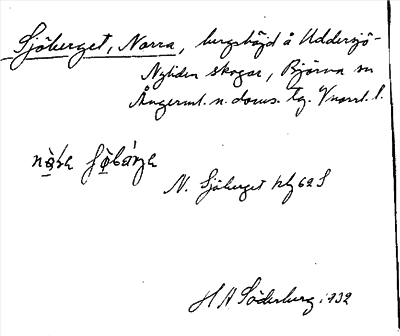 Sjöberget, Norra, bergshöjd å Uddersjö-
Nyliden skogar, Björna sn
Ångerml. n. doms. tg. Vnorrl. l.
N. Sjöberget
H A Söderberg 1932